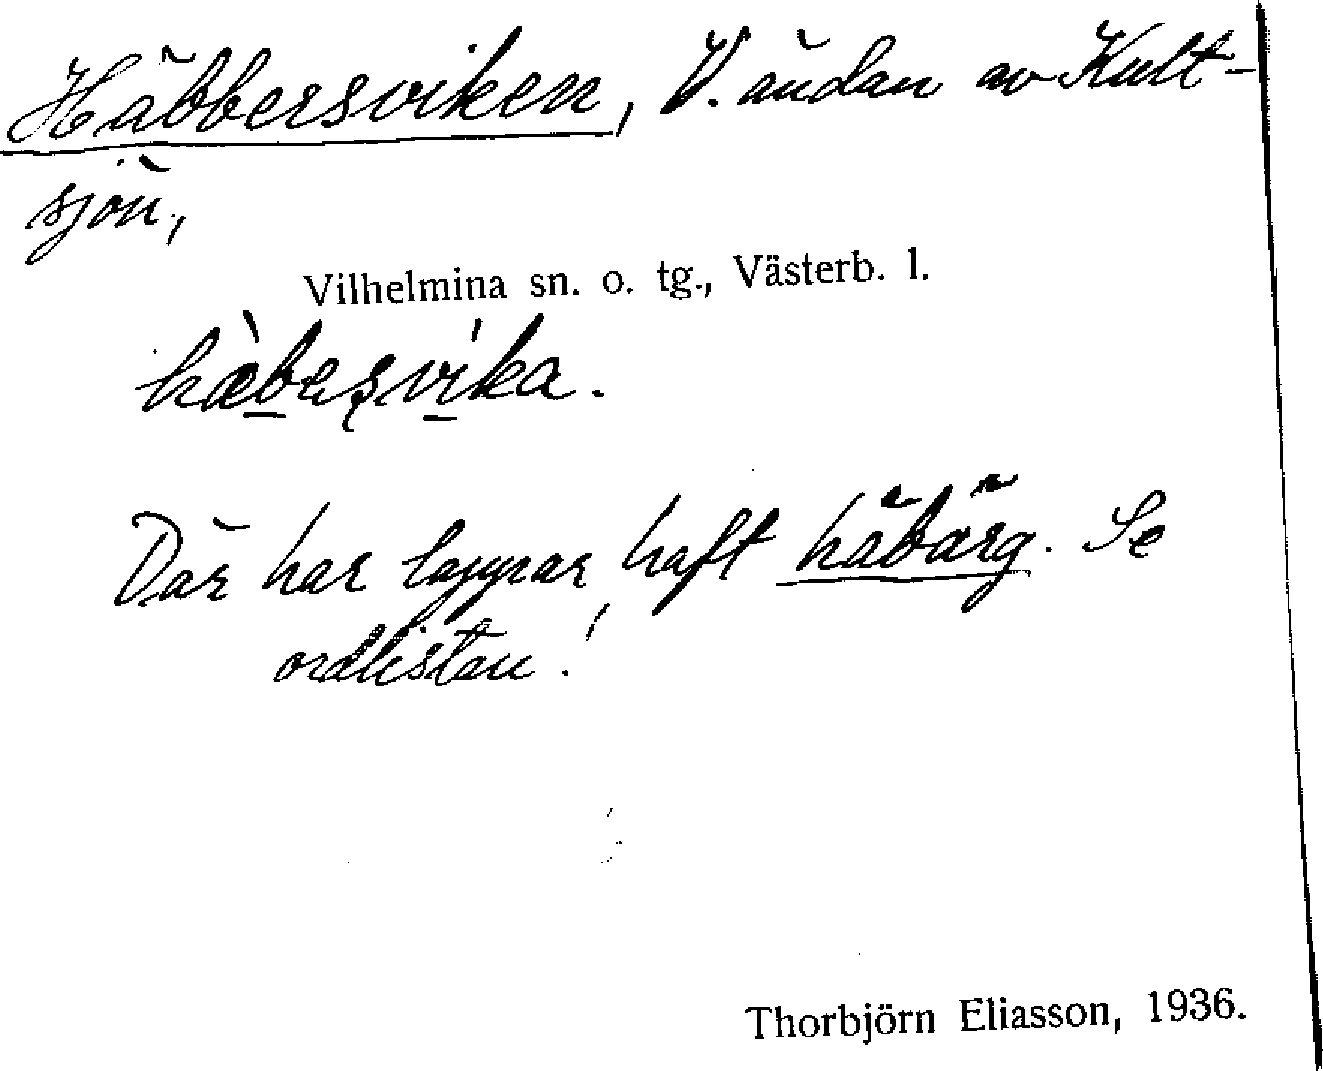 Häbbersviken, V. ändan av Kult-
sjön,
Vilhelmina sn. o. tg., Västerb. l.
hæ̀beʂvíka.
Där har lappar haft häbärg. Se
ordlistan!
Thorbjörn Eliasson, 1936.